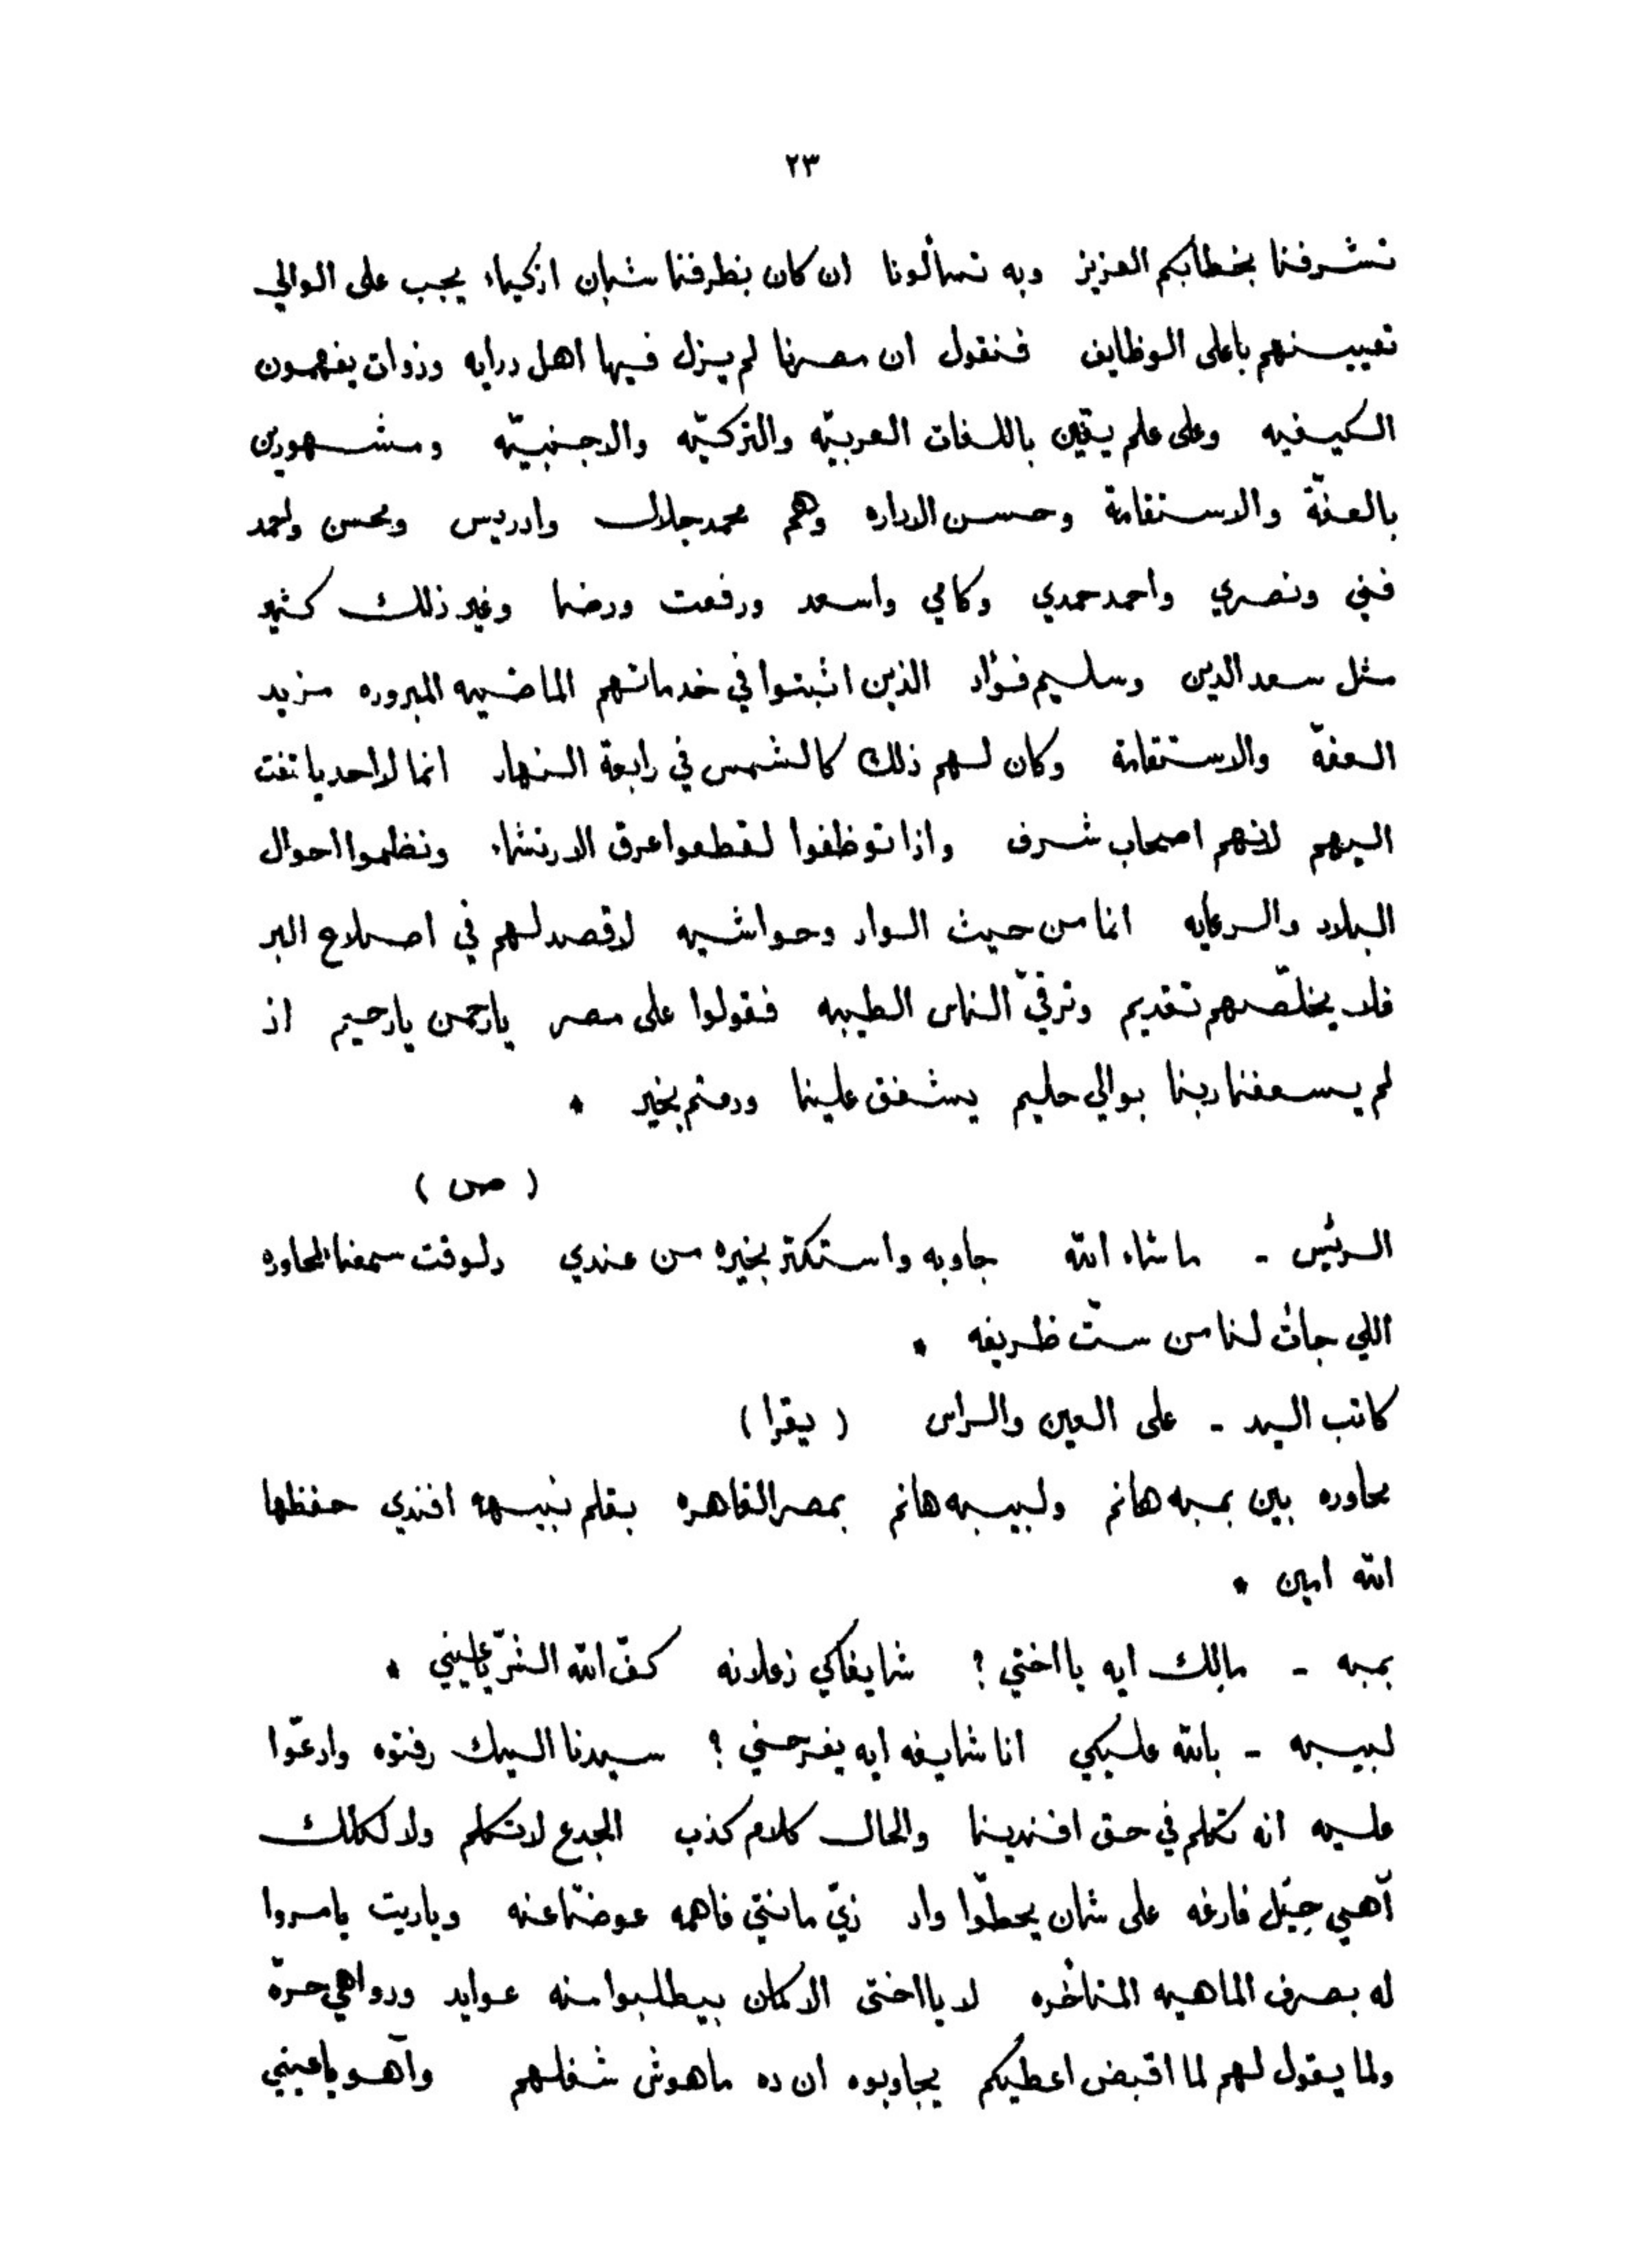 ٢٣
تشرفنا بخطابكم العزيز وبه تسألونا ان كان بطرفنا شبان ازكياء يجب على الوالي
تعيينهم باعلى الوظايف فنقول ان مصرنا لم يزل فيها اهل درايه وذوات يفهمون
الكيفيه وعلى علم يقين باللغات العربيّه والتركيّه والاجنبيّه ومشهورين
بالعفّة والاستقامة وحسن الاداره وهم محمد جلال وادريس ومحسن واحمد
فني ونصري واحمد حمدي وكامي واسعد ورفعت ورضا وغير ذلك كثير
مثل سعد الدين وسليم فؤاد الذين اثبتوا في خدماتهم الماضيه المبروره مزيد
العفّة والاستقامة وكان لهم ذلك كالشمس في رابعة النهار انما لا احد يلتفت
اليهم لانهم اصحاب شرف واذا توظفوا لقطعوا عرق الارتشاء ونظموا احوال
البلاد والرعايه انما من حيث الواد وحواشيه لا قصد لهم في اصلاح البر
فلا يخلّصهم تقديم وترقيّ الناس الطيبه فقولوا على مصر يا رحمن يا رحيم اذ
لم يسعفنا ربنا بوالي حليم يشفق علينا ودمتم بخير *
( ص )
الريّس - ما شاء الله جاوبه واستكتر بخيره من عندي دلوقت سمعنا المحاوره
اللي جات لنا من ستّ ظريفه *
كاتب السيد - على العين والراس ( يقرا )
محاوره بين بمبه هانم ولبيبه هانم بمصر القاهره بقلم نبيهه افندي حفظها
الله امين *
بمبه - مالك ايه يا اختي ؟ شايفاكي زعلانه كفّ الله الشرّ يا عليني *
لبيبه - بالله عليكي انا شايفه ايه يفرحني ؟ سيدنا البيك رفتوه وادعّوا
عليه انه تكلم في حق افندينا والحال كلام كذب الجدع لا تكلم ولا لكلك
آهي حِيَل فارغه على شان يحطّوا واد زيّ مانتي فاهمه عوضًا عنه وياريت يامروا
له بصرف الماهيه المتأخره لا يا اختى الا كمان بيطلبوا منه عوايد ودواهي حرّه
ولما يقول لهم لما اقبض اعطيكم يجاوبوه ان ده ماهوش شغلهم وآهو يا عيني